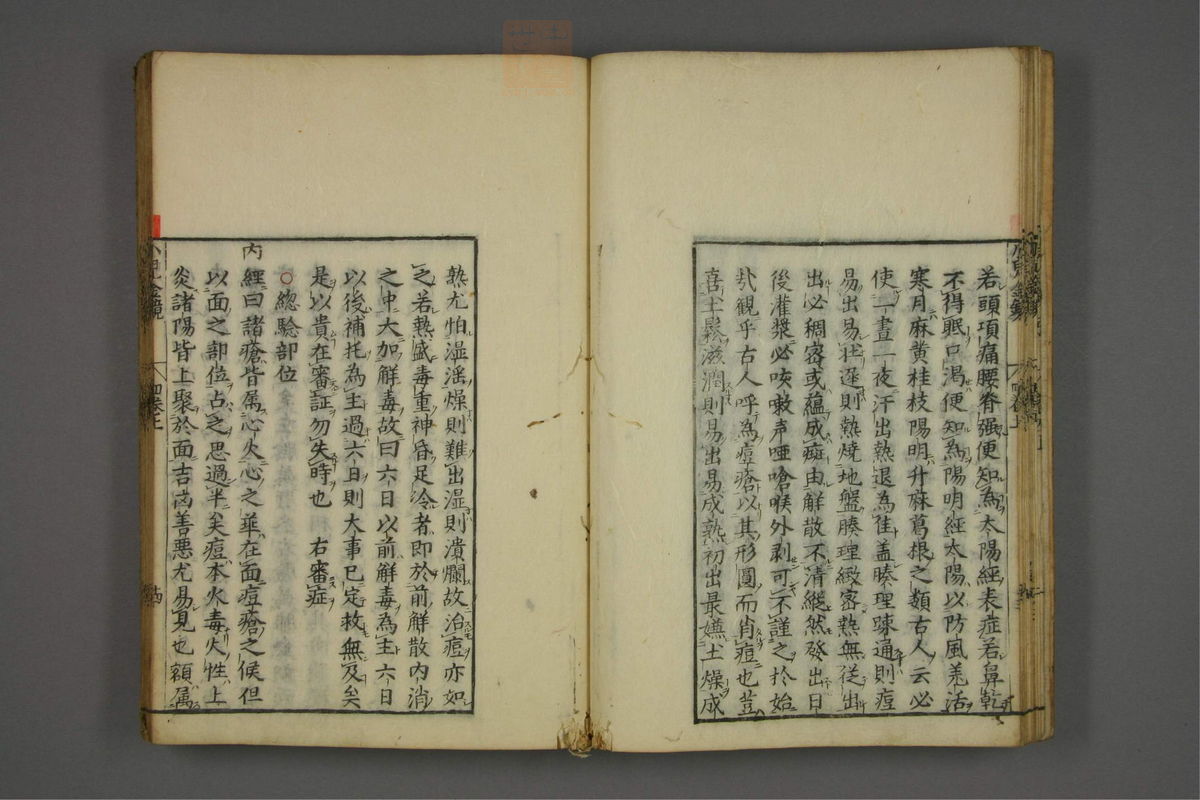 若頭項痛腰脊强便知為太陽經表症若鼻乾
不得眠口渴便知為陽明經太陽以防風羗活
寒月麻黄桂枝陽明升麻葛根之類古人云必
使一晝一夜汗出熱退為佳盖腠理疎通則痘
易出易壮遅則熱燒地盤腠理緻密熱無従出
出必稠密或蘊成癍由解散不清縱然發出日
後灌漿必咳嗽声啞嗆喉外剥可不謹之扵始
㢤観乎古人呼為痘瘡以其形圓而肖痘也荳
喜土鬆滋潤則易出易成熟初出最嫌土燥成
熟尤怕湿滛燥則難出湿則潰爛故治痘亦如
之若熱盛毒重神昏足冷者即於前解散内消
之中大加解毒故曰六日以前解毒為主六日
以後補托為主過六日則大事已定救無及矣
是以貴在審証勿失時也 右審症
○總驗部位
内經曰諸瘡皆属心火心之華在面痘瘡之候但
以面之部位占之思過半矣痘本火毒火性上
炎諸陽皆上聚於面吉㐫善悪尤易見也額属